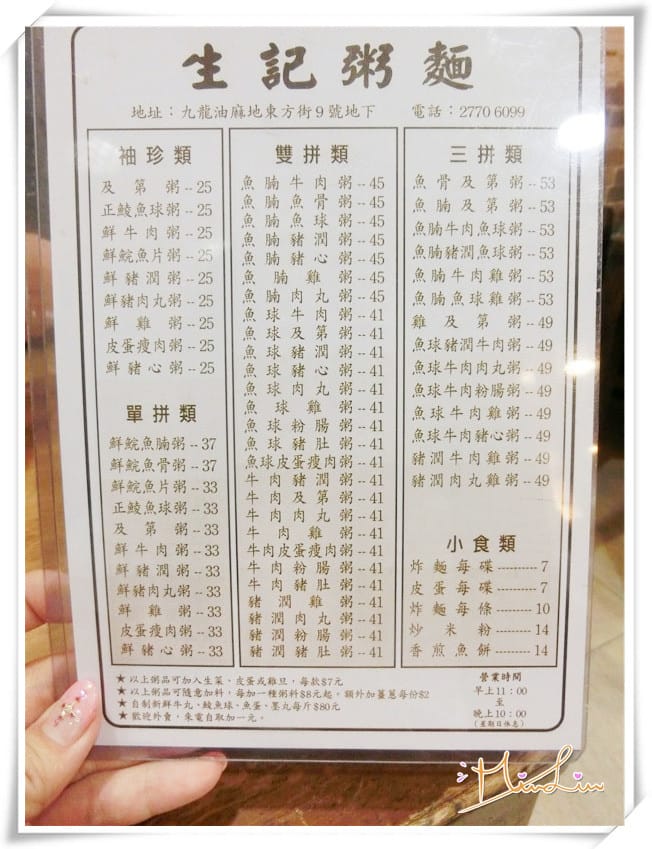 生記粥麵
地址：九龍油麻地東方街9號地下 電話：2770 6099
袖珍類
及第粥--25
正鯪魚球粥--25
鮮牛肉粥--25
鮮鯇魚片粥--25
鮮豬潤粥--25
鮮豬肉丸粥--25
鮮雞粥--25
皮蛋瘦肉粥--25
鮮豬心粥--25
單拼類
鮮鯇魚腩粥--37
鮮鯇魚骨粥--37
鮮鯇魚片粥--33
正鯪魚球粥--33
及第粥--33
鮮牛肉粥--33
鮮豬潤粥--33
鮮豬肉丸粥--33
鮮雞粥--33
皮蛋瘦肉粥--33
鮮豬心粥--33
雙拼類
魚腩牛肉粥--45
魚腩魚骨粥--45
魚腩魚球粥--45
魚腩豬潤粥--45
魚腩豬心粥--45
魚腩雞粥--45
魚腩肉丸粥--45
魚球牛肉粥--41
魚球及第粥--41
魚球豬潤粥--41
魚球豬心粥--41
魚球肉丸粥--41
魚球雞粥--41
魚球粉腸粥--41
魚球豬肚粥--41
魚球皮蛋瘦肉粥--41
牛肉豬潤粥--41
牛肉及第粥--41
牛肉肉丸粥--41
牛肉雞粥--41
牛肉皮蛋瘦肉粥--41
牛肉粉腸粥--41
牛肉豬肚粥--41
豬潤雞粥--41
豬潤肉丸粥--41
豬潤粉腸粥--41
豬潤豬肚粥--41
三拼類
魚骨及第粥--53
魚腩及第粥--53
魚腩牛肉魚球粥--53
魚腩豬潤魚球粥--53
魚腩牛肉雞粥--53
魚腩魚球雞粥--53
雞及第粥--49
魚球豬潤牛肉粥--49
魚球牛肉肉丸粥--49
魚球牛肉粉腸粥--49
魚球牛肉雞粥--49
魚球牛肉豬心粥--49
豬潤牛肉雞粥--49
豬潤肉丸雞粥--49
小食類
炸麵每碟----------7
皮蛋每碟----------7
炸麵每條--------10
炒米粉---------14
香煎魚餅--------14
★以上粥品可加入生菜、皮蛋或雞旦，每款$7元
★以上粥品可隨意加料，每加一種粥料$8元起。額外加薑蔥每份$2
★自制新鮮牛丸、鯪魚球、魚蛋、墨丸每斤$80元
★歡迎外賣，來電自取加一元。
營業時間
早上11：00
至
晚上10：00
(星期日休息)
MianLiu